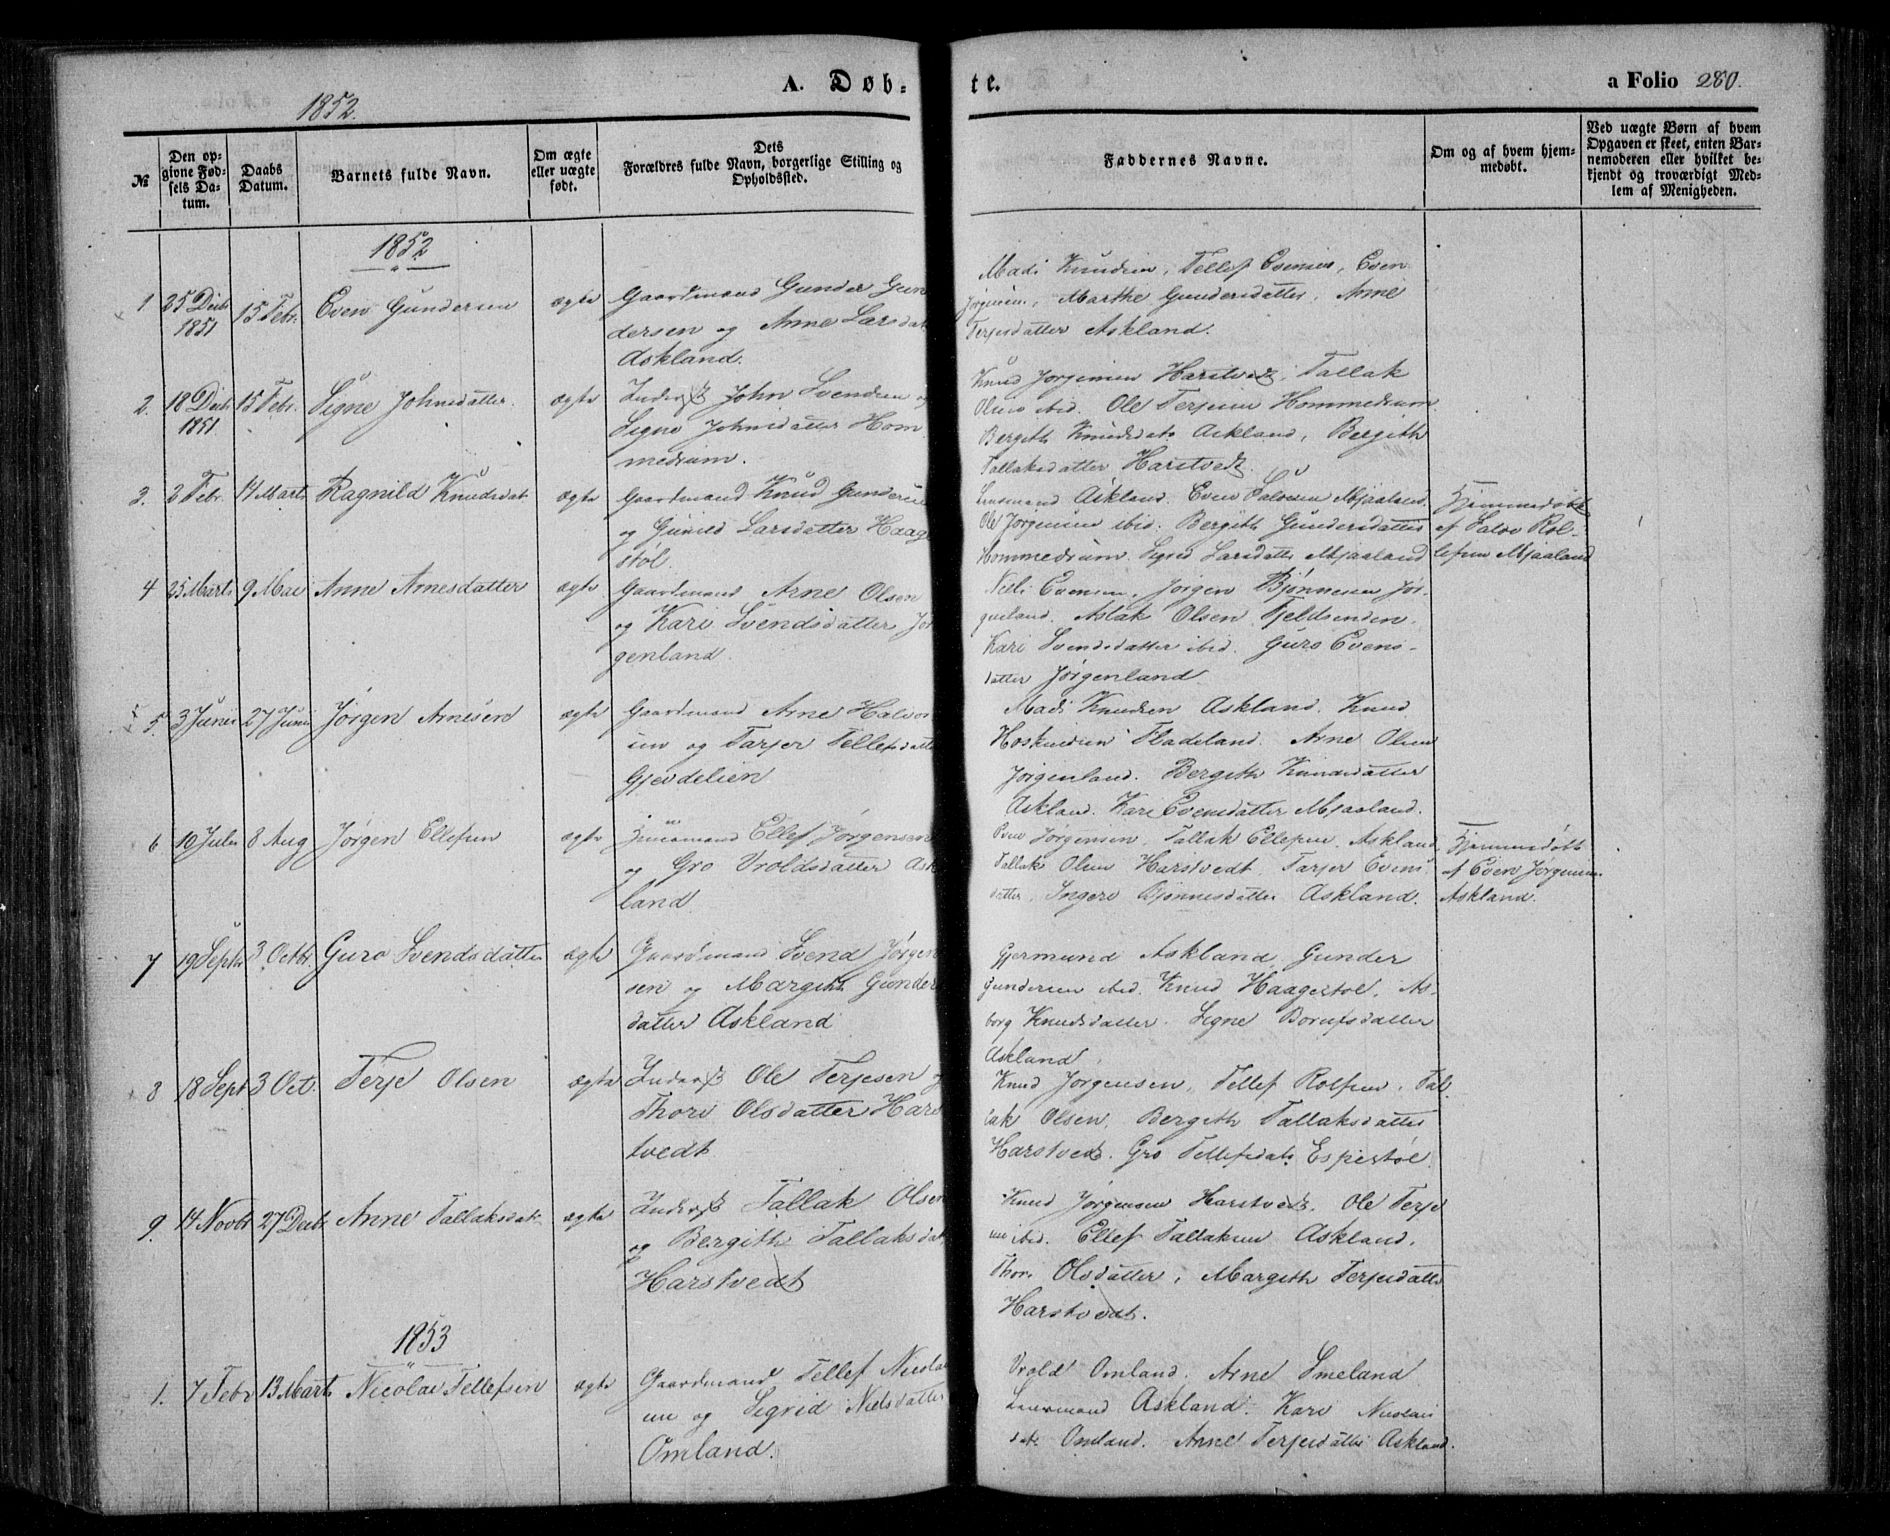 1852.
A. Døb-
te.
a Folio 280.
№
Den op-
givne Fød-
sels Da-
tum.
Daabs
Datum.
Barnets fulde Navn.
Om ægte
eller uægte
født.
Dets
Forældres fulde Navn, borgerlige Stilling og
Opholdssted.
Faddernes Navne.
Om og af hvem hjem-
medøbt.
Ved uægte Børn af hvem
Opgaven er skeet, enten Bar-
nemoderen eller hvilket be-
kjendt og troværdigt Med-
lem af Menigheden.
1852
1
25 Decbr
1851
15 Febr.
Even Gundersen
ægte
Gaardmand Gunder Gun
dersen og Anne Larsdat
Askland.
Mads Knudsen, Tellef Evensen, Even
Jørgensen, Marthe Gundersdatter, Anne
Terjesdatter Askland.
2.
18 Decbr
1851
15 Febr.
Signe Johnsdatter.
ægte
Inders John Svendsen og
Signe Johnsdatter Hom
medrum.
Knud Jorgensen Harstvedt, Tallak
Olsen ibid. Ole Terjesen Hommedrum
Bergith Knudsdatr Askland, Bergith
Tallaksdatter Harstvedt.
3.
2 Febr.
14 Marts
Ragnild Knudsdat
ægte
Gaardmand Knud Gundersen
og Gunild Larsdatter Haage
støl.
Lensmand Askland. Even Salvesen Mjaaland.
Ole Jørgensen ibid. Bergith Gundersdatter
Hommedrum. Sigrid Larsdatter Mjaaland
Hjemmedøbt
af Salve Rol-
lefsen Mjaaland
4
25 Marts
9 Mai
Anne Arnesdatter
ægte
Gaardmand Arne Olsen
og Kari Svendsdatter Jør
genland.
Niels Evensen, Jørgen Bjønnesen Jør-
genland. Aslak Olsen Fjeldsenden.
Kari Svendsdatter ibid. Guro Evens-
datter Jørgenland.
5.
3 Juni
27 Juni
Jørgen Arnesen
ægte
Gaardmand Arne Halvor
sen og Tarjer Tellefsdatter
Gjevdelien
Mads Knudsen Askland. Knud
Fladeland. Arne Olsen
Jørgenland. Bergith Knudsdatter
Askland. Kari Evensdatter Mjaaland.
6
10 Juli
8 Aug
Jørgen Ellefsen
ægte
Ellef Jørgensen
og Gro Vroldsdatter Ask
land.
Even Jørgensen, Tallak Ellefsen, Askland
Tallak Olsen Harstvedt, Tarjer Evens
datter, Ingere Bjønnesdatter Askland.
Hjemmedøbt
af Even Jørgensen
Askland.
7
19 Septbr
3 Octbr
Guro Svendsdatter
ægte
Gaardmand Svend Jørgen
sen og Margith Gunders
datter Askland
Gjermund Askland Gunder
Gundersen ibid. Knud Haagestøl, As-
borg Knudsdatter. Signe Borufsdatter
Askland.
8
18 Sept
3 Oct.
Terje Olsen
ægte
Inders Ole Terjesen og
Thore Olsdatter Hars
tvedt
Knud Jørgensen, Tellef Rolfsen, Tal
lak Olsen, Bergith Tallaksdatter
Harstvedt. Gro Tellefsdatr Espestøl.
9.
14 Novbr
27 Decbr
Anne Tallaksdatr
ægte
Inders Tallak Olsen
og Bergith Tallaksdatr
Harstvedt
Knud Jørgensen Harstvedt. Ole Terje
sen ibid. Ellef Tallaksen Askland.
Thore Olsdatter, Margith Terjesdatter
Harstvedt.
1853
1.
7 Febr
13 Marts
Nicolai Tellefsen
ægte
Gaardmand Tellef Nicolai
sen og Sigrid Nielsdatter
Omland.
Vrold Omland. Arne Smeland
Lensmand Askland. Kari Nicolais
datr Omland. Anne Terjesdatter Askland.